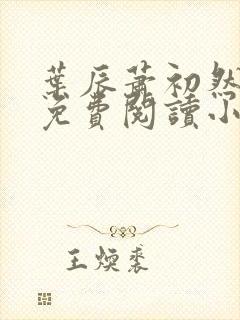 葉辰蕭初然
免費閱讀小
王煥裘